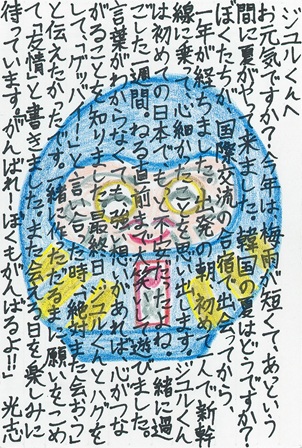 ジュルくんへ
お元気ですか？今年は梅雨が短くて、あっという
間に夏がやって来ました。韓国の夏はどうですか？
ぼくたちが国際交流の合宿で出会ってから、
一年が経ちました。出発の朝、初めて一人で新幹
線に乗って心細かったことを思い出します。ジュルくん
は初めての日本でもっと不安だったよね。一緒に過
ごした一週間。ねる直前まで大笑いして遊びました。
言葉がわからなくても強い想いがあれば心がつな
がることを知りました。最終日、ジュルくんとハグを
して「ゲッバー！」と言い合った時、絶対また会おう
と伝えたかったです。一緒に作っただるまに願いをこめ
て「友情」と書きました。また会える日を楽しみに
待っています。がんばれ！ぼくもがんばるよ!!